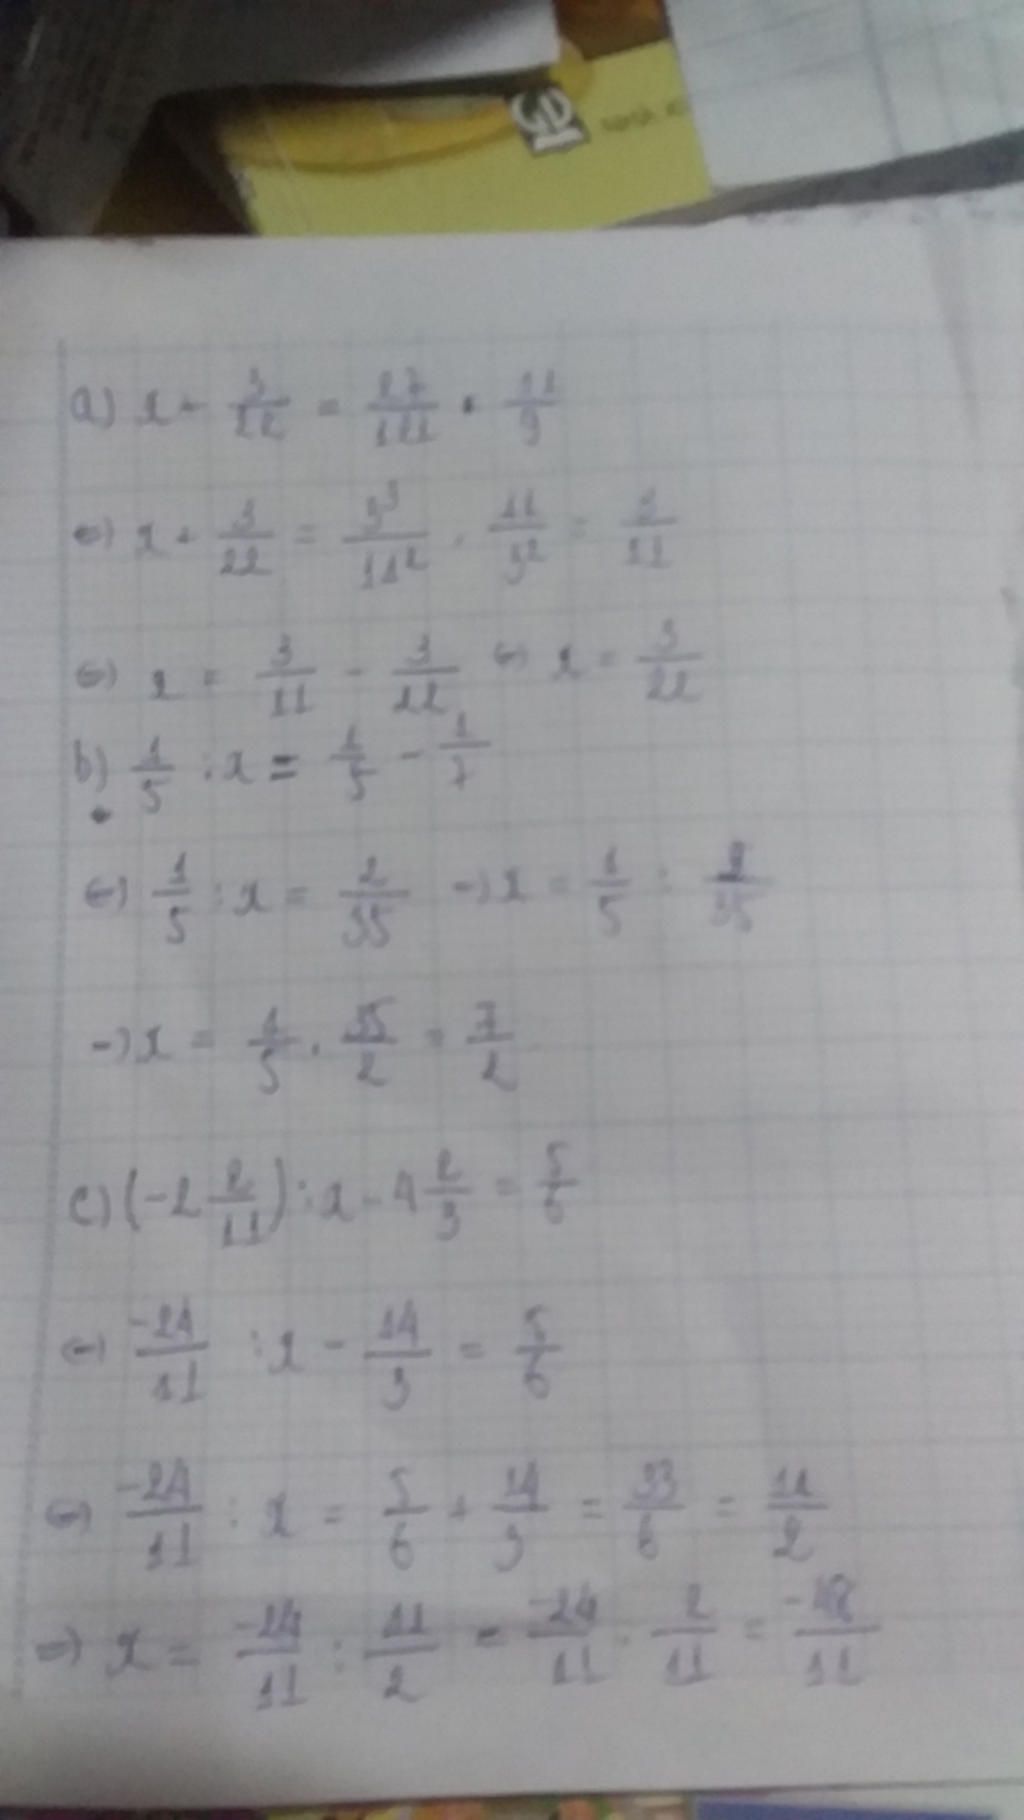 a) x + 3/22 = 27/121 . 11/9
<=> x + 3/22 = 3³/11² . 11/3² = 3/11
<=> x = 3/11 - 3/22 <=> x = 3/22
b) 1/5 : x = 1/5 - 1/7
<=> 1/5 : x = 2/35 => x = 1/5 : 2/35
=> x = 1/5 . 35/2 = 7/2
c) (-2 2/11) : x - 4 2/3 = 5/6
<=> -24/11 : x - 14/3 = 5/6
<=> -24/11 : x = 5/6 + 14/3 = 33/6 = 11/2
=> x = -24/11 : 11/2 = -24/11 . 2/11 = -48/11